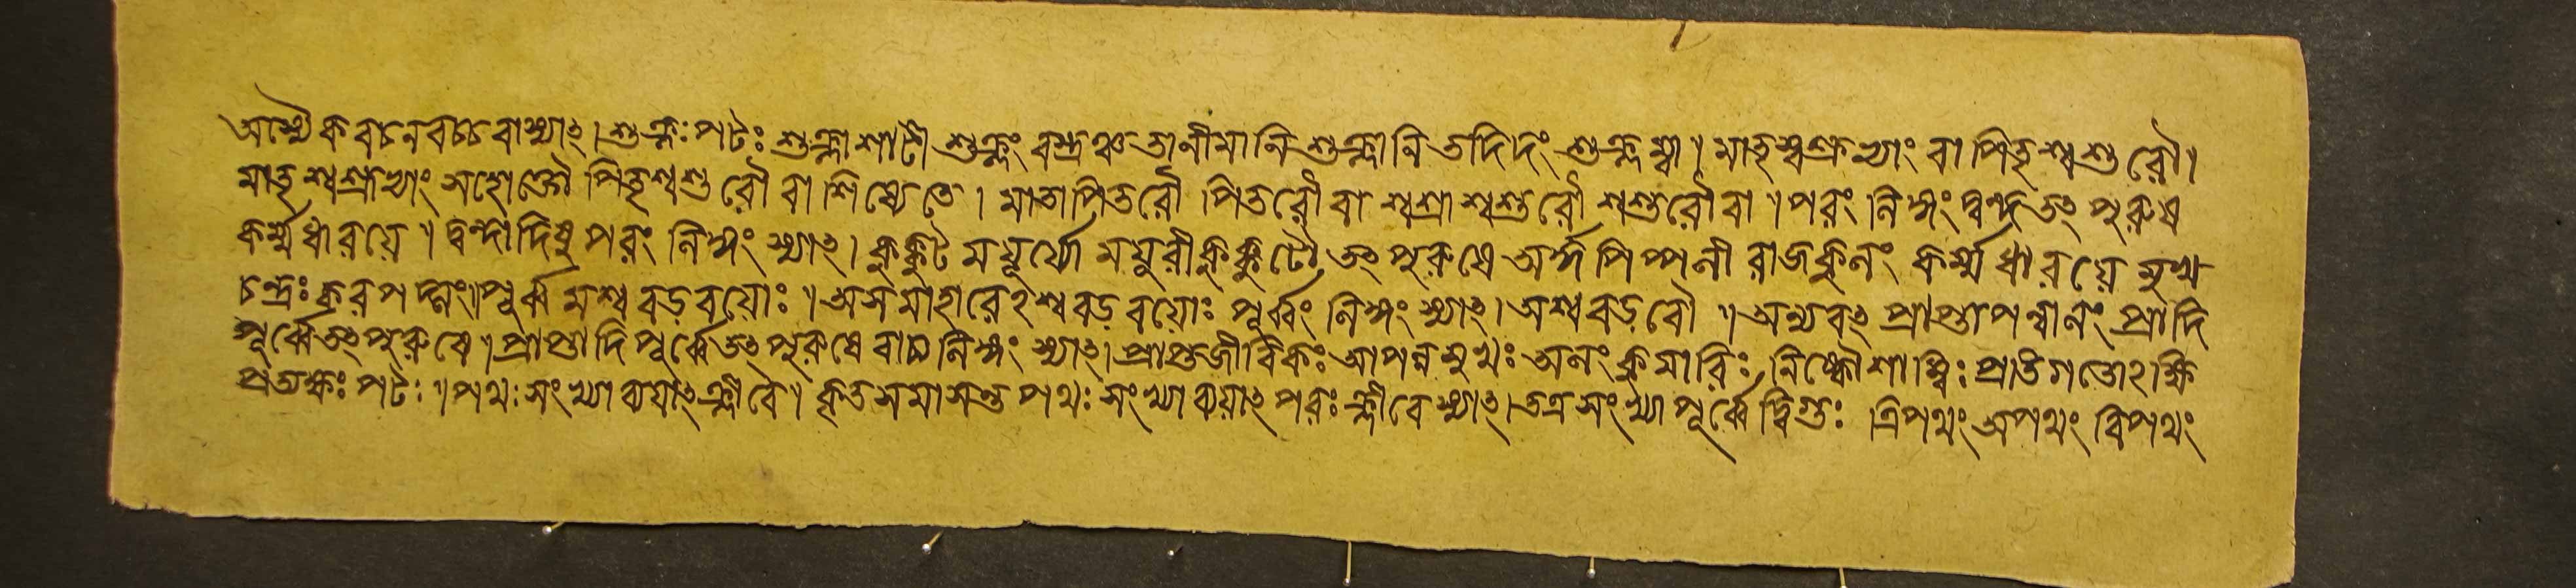 অস্যৈকবচনবচ্চ বা স্যাৎ। শুক্লঃ পটঃ শুক্লা শাটী শুক্লং বস্ত্রঞ্চ তানীমানি শুক্লানি তদিদং শুক্লম্বা। মাতৃশ্বশ্রূভ্যাং বা পিতৃশ্বশুরৌ।
মাতৃশ্বশ্রূভ্যাং সহোক্তৌ পিতৃশ্বশুরৌ বা শিষ্যেতে। মাতাপিতরৌ পিতরৌ বা শ্বশ্রূশ্বশুরৌ শ্বশুরৌ বা। পরং লিঙ্গং দ্বন্দ্বতৎপুরুষ
কর্ম্মধারয়ে। দ্বন্দাদিষু পরং লিঙ্গং স্যাৎ। কুক্কুটময়ূর্য্যৌ ময়ূরীকুক্কুটৌ তৎপুরুষে অর্দ্ধপিপ্পলী রাজকুলং কর্ম্মধারয়ে মুখ
চন্দ্রঃ করপদ্মং। পূর্ব্বমশ্ববড়বয়োঃ। অসমাহারেঽশ্ববড়বয়োঃ পূর্ব্বং লিঙ্গং স্যাৎ। অশ্ববড়বৌ। অন্যবৎ প্রাপ্তাপন্নালং প্রাদি
পূর্ব্বে তৎপুরুষে। প্রাপ্তাদিপূর্ব্বে তৎপুরুষে বাচ্যলিঙ্গং স্যাৎ। প্রাপ্তজীবিকঃ আপন্নসুখঃ অলং কুমারিঃ নিষ্কৌশাম্বিঃ প্রতিগতোঽক্ষি
প্রত্যক্ষঃ পটঃ। পথঃ সংখ্যাব্যয়াৎ ক্লীবে। কৃতসমাসন্ত পথঃ সংখ্যাব্যয়াৎ পরঃ ক্লীবে স্যাৎ। তত্র সংখ্যাপূর্ব্বে দ্বিগুঃ ত্রিপথং অপথং বিপথং